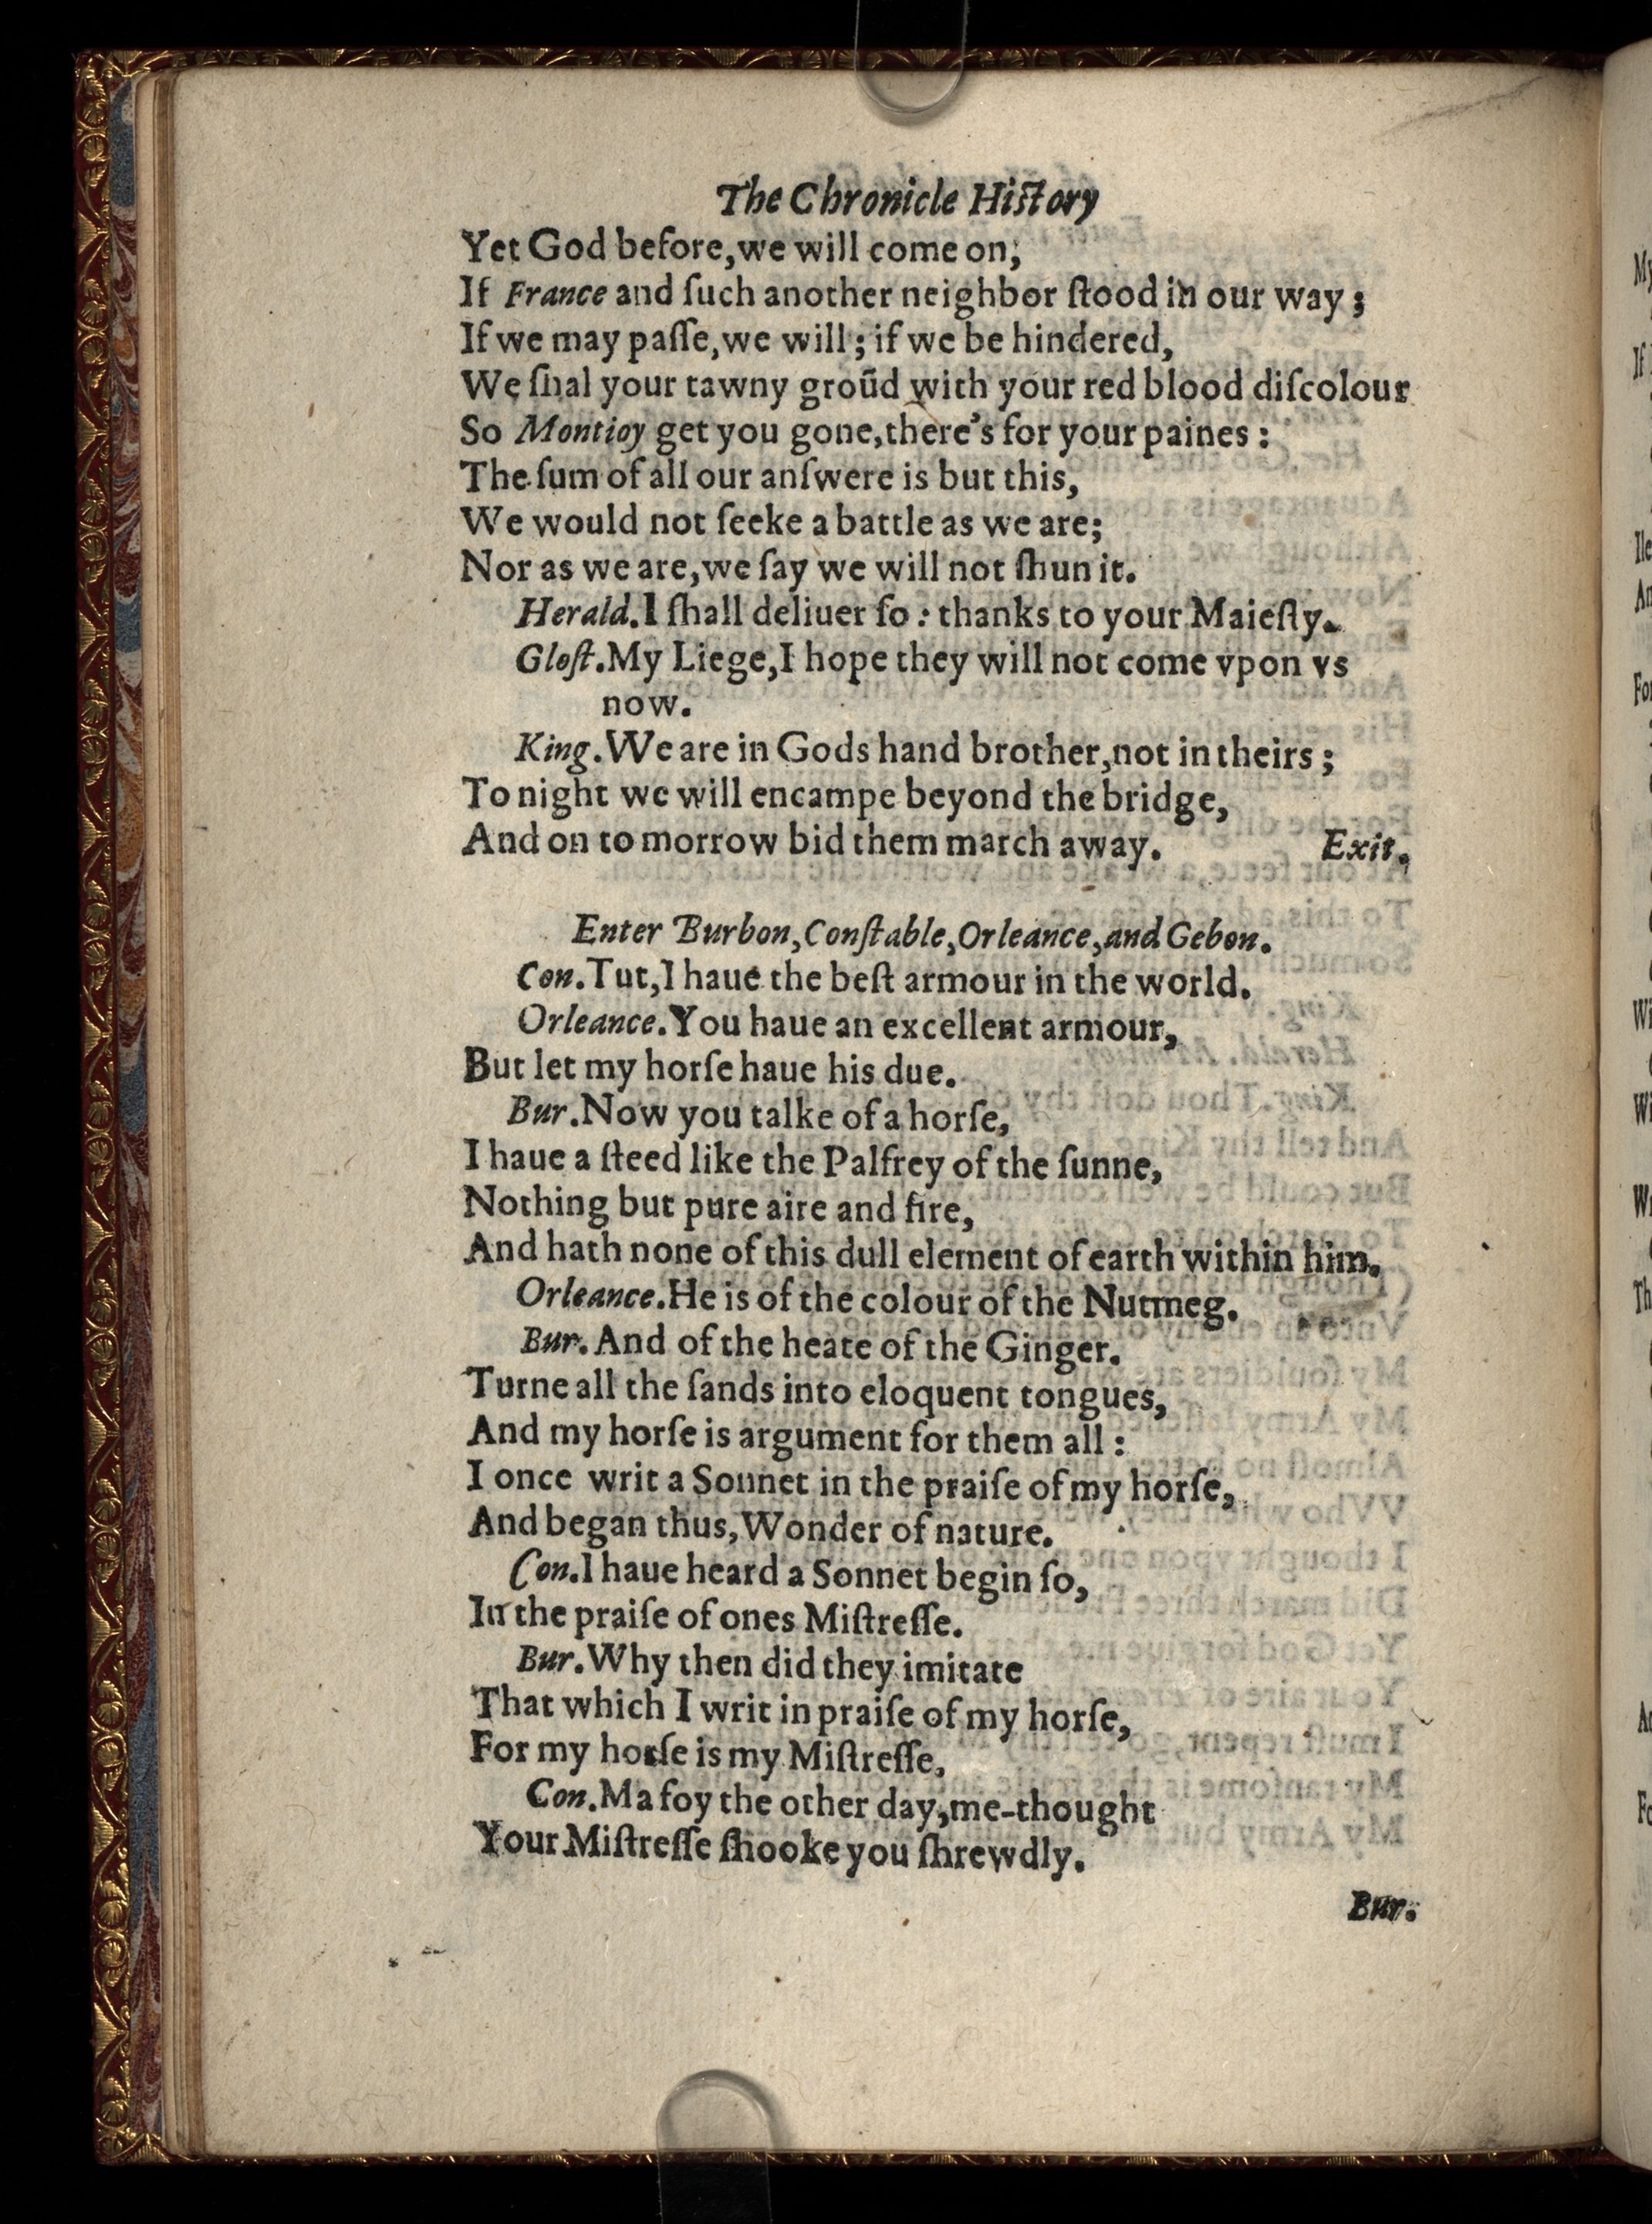 The Chronicle Hiſtory
Yet God before,we will come on;
If France and ſuch another neighbor ſtood in our way;
If we may paſſe,we will; if we be hindered,
We ſhal your tawny groūd with your red blood diſcolour
So Montioy get you gone,there's for your paines:
The ſum of all our anſwere is but this,
We would not ſeeke a battle as we are;
Nor as we are,we ſay we will not ſhun it.
Herald.I ſhall deliuer ſo: thanks to your Maieſty.
Gloſt.My Liege,I hope they will not come vpon vs
now.
King.We are in Gods hand brother,not in theirs;
To night we will encampe beyond the bridge,
And on to morrow bid them march away. Exit.
Enter Burbon,Conſtable,Orleance,and Gebon.
Con.Tut,I haue the beſt armour in the world.
Orleance.You haue an excellent armour,
But let my horſe haue his due.
Bur.Now you talke of a horſe,
I haue a ſteed like the Palfrey of the ſunne,
Nothing but pure aire and fire,
And hath none of this dull element of earth within him.
Orleance.He is of the colour of the Nutmeg.
Bur.And of the heate of the Ginger.
Turne all the ſands into eloquent tongues,
And my horſe is argument for them all:
I once writ a Sonnet in the praiſe of my horſe,
And began thus,Wonder of nature.
Con.I haue heard a Sonnet begin ſo,
In the praiſe of ones Miſtreſſe.
Bur.Why then did they imitate
That which I writ in praiſe of my horſe,
For my horſe is my Miſtreſſe,
Con.Ma foy the other day,me-thought
Your Miſtreſſe ſhooke you ſhrewdly.
Bur.